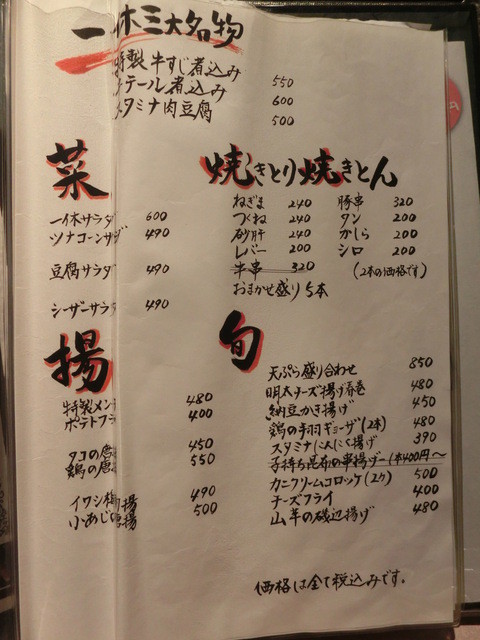 一休三大名物
特製牛すじ煮込み 550
テール煮込み 600
スタミナ肉豆腐 500
菜
一休サラダ 600
ツナコーンサラダ 490
豆腐サラダ 490
シーザーサラダ 490
焼きとり焼きとん
ねぎま 240
つくね 240
砂肝 240
レバー 200
牛串 320
おまかせ盛り5本
豚串 320
タン 200
かしら 200
シロ 200
(2本の価格です)
揚
特製メンチ 480
ポテトフラ 400
タコの唐 450
鶏の唐 550
イワシ梅 揚 490
小あじの唐揚 500
旬
天ぷら盛り合わせ 850
明太チーズ揚げ春巻 480
納豆かき揚げ 450
鶏の手羽ギョーザ(2本) 480
スタミナにんにく揚げ 390
子持ち昆布の串揚げ 1本400円~
カニクリームコロッケ(2ケ) 500
チーズフライ 400
山羊の磯辺揚げ 480
価格は全て税込みです。